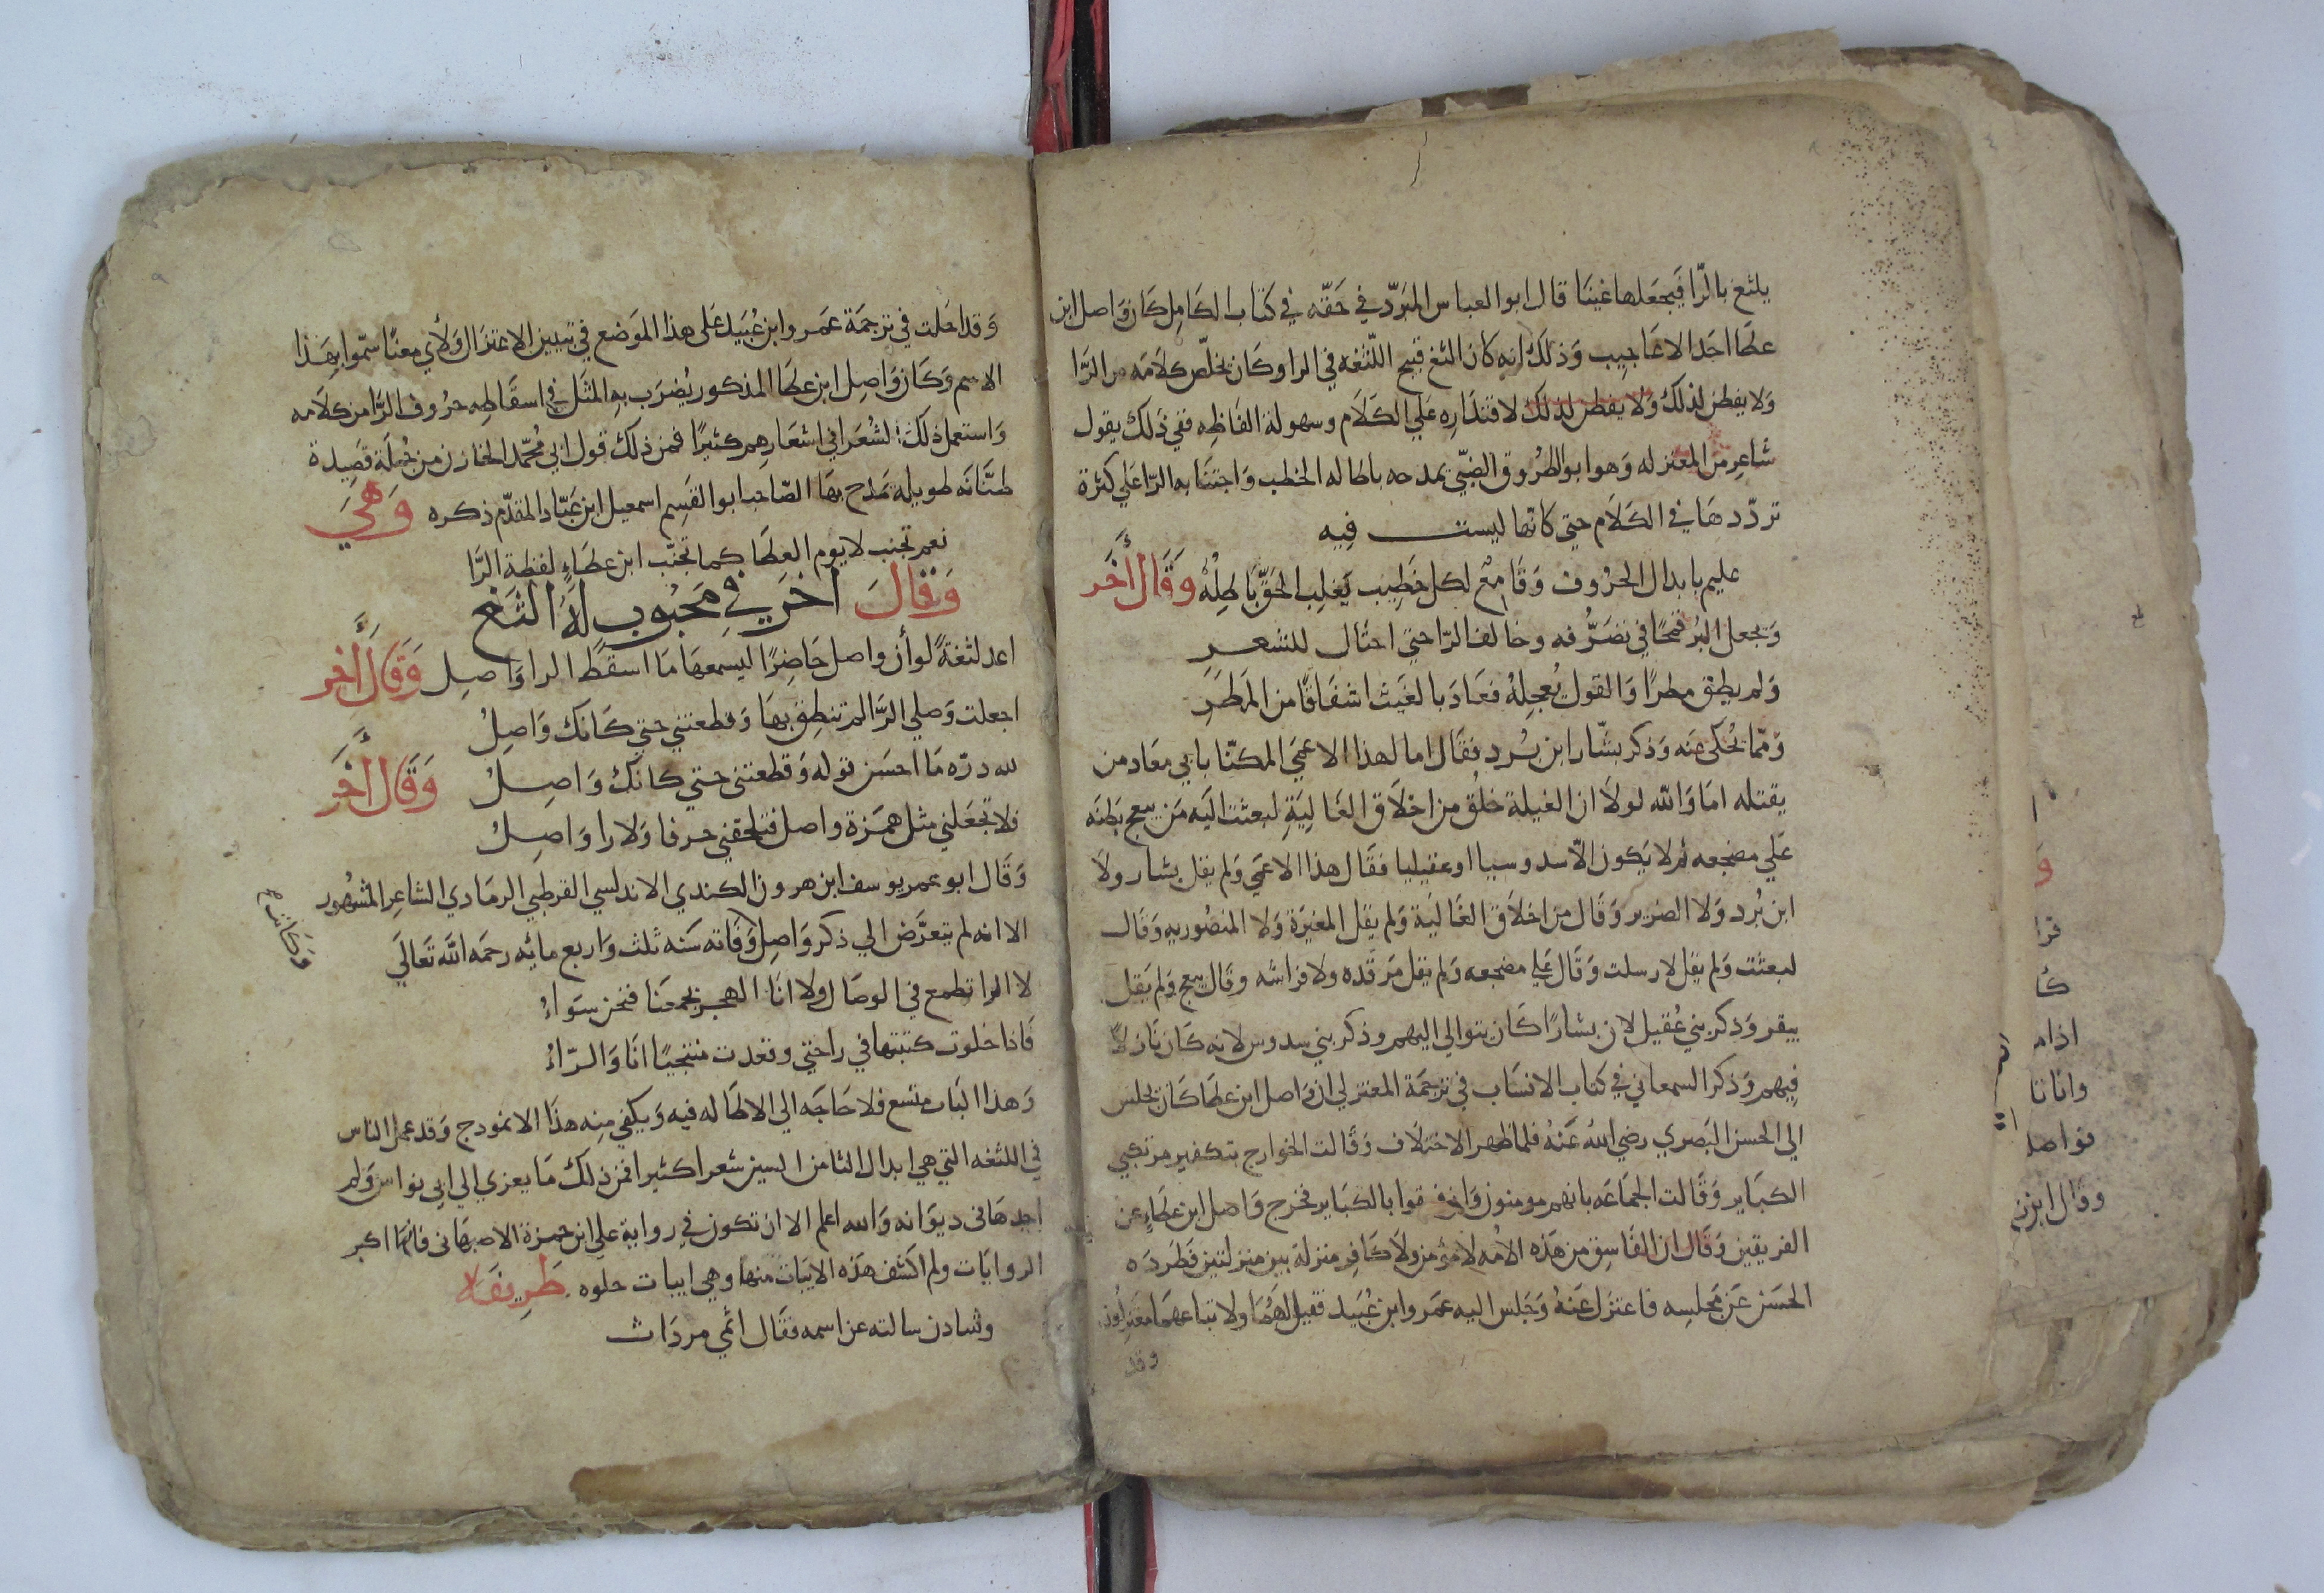 يلثغ بالرّا فيجعلها غينا قال ابوا لعباس المبَرّد في حَقّه في كتاب الكامِل كان وَاصل ابن
عطَا احَد الاعَاجيب وَذلك انه كان الثغ قبيح اللّثغه في الرا وكان يخلّص كلامَه من الرَّا
وَلا يفطن لذلك وَلا يفطن لذلك لاقتدَارِه عَلي الكَلَام وسهولة الفَاظِه ففي ذَلك يقول
شاعِر من المعتزله وَهوا بوالطرُوق الضبّي يمدحه باطاله الخطب وَاجتنَابه الرّا عَلي كثرة
تردّدهَا في الكَلَام حتي كانها ليست فِيه
عليم بابدال الحرُوف وَقَامِعٌ لكل خطِيب يَغلِب الحَقَّ بَاطِلُهْ وَقَالَ أخَر
وَيجعل البُر قمحًا في تصَرُّفه وخالف الرّا حتي احتَال للشعر
وَلم يطق مطرًا وَالقول يُعجِلهُ فعَادَ بالغَيث اشفَاقًا من المَطَرِ
وَممّا يُحكى عَنه وَذكر بشّار ابن بُرد فقَال اما لهذا الاعمَي المكتنّا بابي معَاد من
يقتله امَا وَالله لولَا ان الغيلة خلُق من اخلَاق الغَالِيَةِ لبعثت اليَه مَن يبعج بَطنَه
عَلي مضجعه ثم لا يَكون الّا سدوسيا اوعقيليا فقَال هذا الاعمَي وَلم يقل بشار ولا
ابن بُرد وَلا الضرير وَقَال من اخلَاق الغَاليَة وَلم يقل المغيرَة وَلا المنصُوريه وَقَال
لبعثت وَلم يقل لارسلت وَقَال عَلي مضجعه وَلم يقل مَرقَده ولا فراشه وقَال يبعج وَلم يَقل
يبقر وَذكر بني عُقيل لان بشارًا كَان يتوالي اليهم وذكر بني سدوس لانه كَان نَازلًا
فِيهم وَذكر السمعاني في كتاب الانسَاب في ترجمَة المعتزلي ان وَاصل ابن عطَا كَان يجلس
الي الحسن البَصري رضي اللهُ عَنهُ فلما ظهر الاختلَاف وَقَالت الخوارج بتكفير مرتكبي
الكبَاير وَقَالت الجمَاعَه بانهم مومنون وَان فسقوا بالكبَاير فخرج وَاصل ابن عطَاءٍ عن
الفريقين وَقَال ان الفَاسِق من هَذه الامُه لا مؤمن ولَا كَافِر منزلة بين منزلتين فَطَردَه
الحسَن عَن مجلسِه فاعتزل عَنهُ وَجَلس اليه عمَروابن عُبَيد فقيل لهمَا ولاتباعهمَا معتزِلون
وقد
وَقد احَلت في ترجمَة عمَر وابن عُبَيد عَلى هذا الموَضع في تبيين الاعتزَال وَلأي معنًا سمّوا بهَذا
الاسم وَكَان وَاصِل ابن عطَا المذكور يُضرَب بهِ المثَل في اسقَاطِهِ حرُوف الرَّا من كلَامه
وَاستعمل ذلكَ الشُعَرا في اشعَارِهم كثيرًا فمن ذلك قول ابي مُحمّد الخازن من جُملَة قصِيدة
طنّانَه طويله مَدَح بهَا الصّاحب ابوالقَسِم اسمعيل ابن عَبّاد المقدّم ذكره وَهيَ
نعم تجنب لا يوم العطَا كما تجنّب ابن عطَاءٍ لفظة الرَّا
وَقَالَ اخَر في مَحبُوب لهُ الثغ
اعد لثغةً لوأن واصل حَاضِرًا ليسمعهَا مَا اسقَط الرا وَاصِل وَقَالَ أخر
اجعلت وَصلي الرَّا لم تنطِق بهَا وَقطعتني حتي كَانك وَاصِلُ
لله درّه مَا احسَن قوله وَقطعتني حتي كانَك وَاصِلُ وَقَالَ أخَر
فلا تجعَلني مثل همَزة واصل فتلحقني حرفا وَلا را وَاصِل
وَقَال ابو عمر يوسف ابن هرون الكندي الاندلسي القرطبي الرمَادي الشاعِر المشهُور
الا انه لم يتعرَّض الي ذكر وَاصِل وَفَاته سَنه ثلث وَاربع مائه رحمَه الله تَعَالَي
وَكَانت
لا الرا تطمع في الوصَال ولا انَا الهجر يجمعَنا فنحن سوَاءُ
فَاذا خلوت كتبتها في راحتي وقعدت منتحيًا انَا وَالرّاءُ
وَهذا البَاب متسع فلا حَاجَه الي الاطَاله فيه وَيكفي مِنه هذَا الانمودج وَقد عمل الناس
في اللثغه التي هي ابدال الثا من السين شعرا كثيرا فمن ذلك مَا يعزي الي ابي نواس وَلم
اجدهَا في ديوَانه وَالله اعلم الا ان تكون في رواية علي ابن حمزة الاصبهاني فانهَا اكبر
الروايَات ولم اكشف هَذه الابيَات منها وهي ابيات حلوه طَرِيفَه
وشادن سالته عن اسمه فقَال اثمي مردَاث
ا
وَ
قرا
كَا
اذام
وانانا
فواصل
وقال ابن